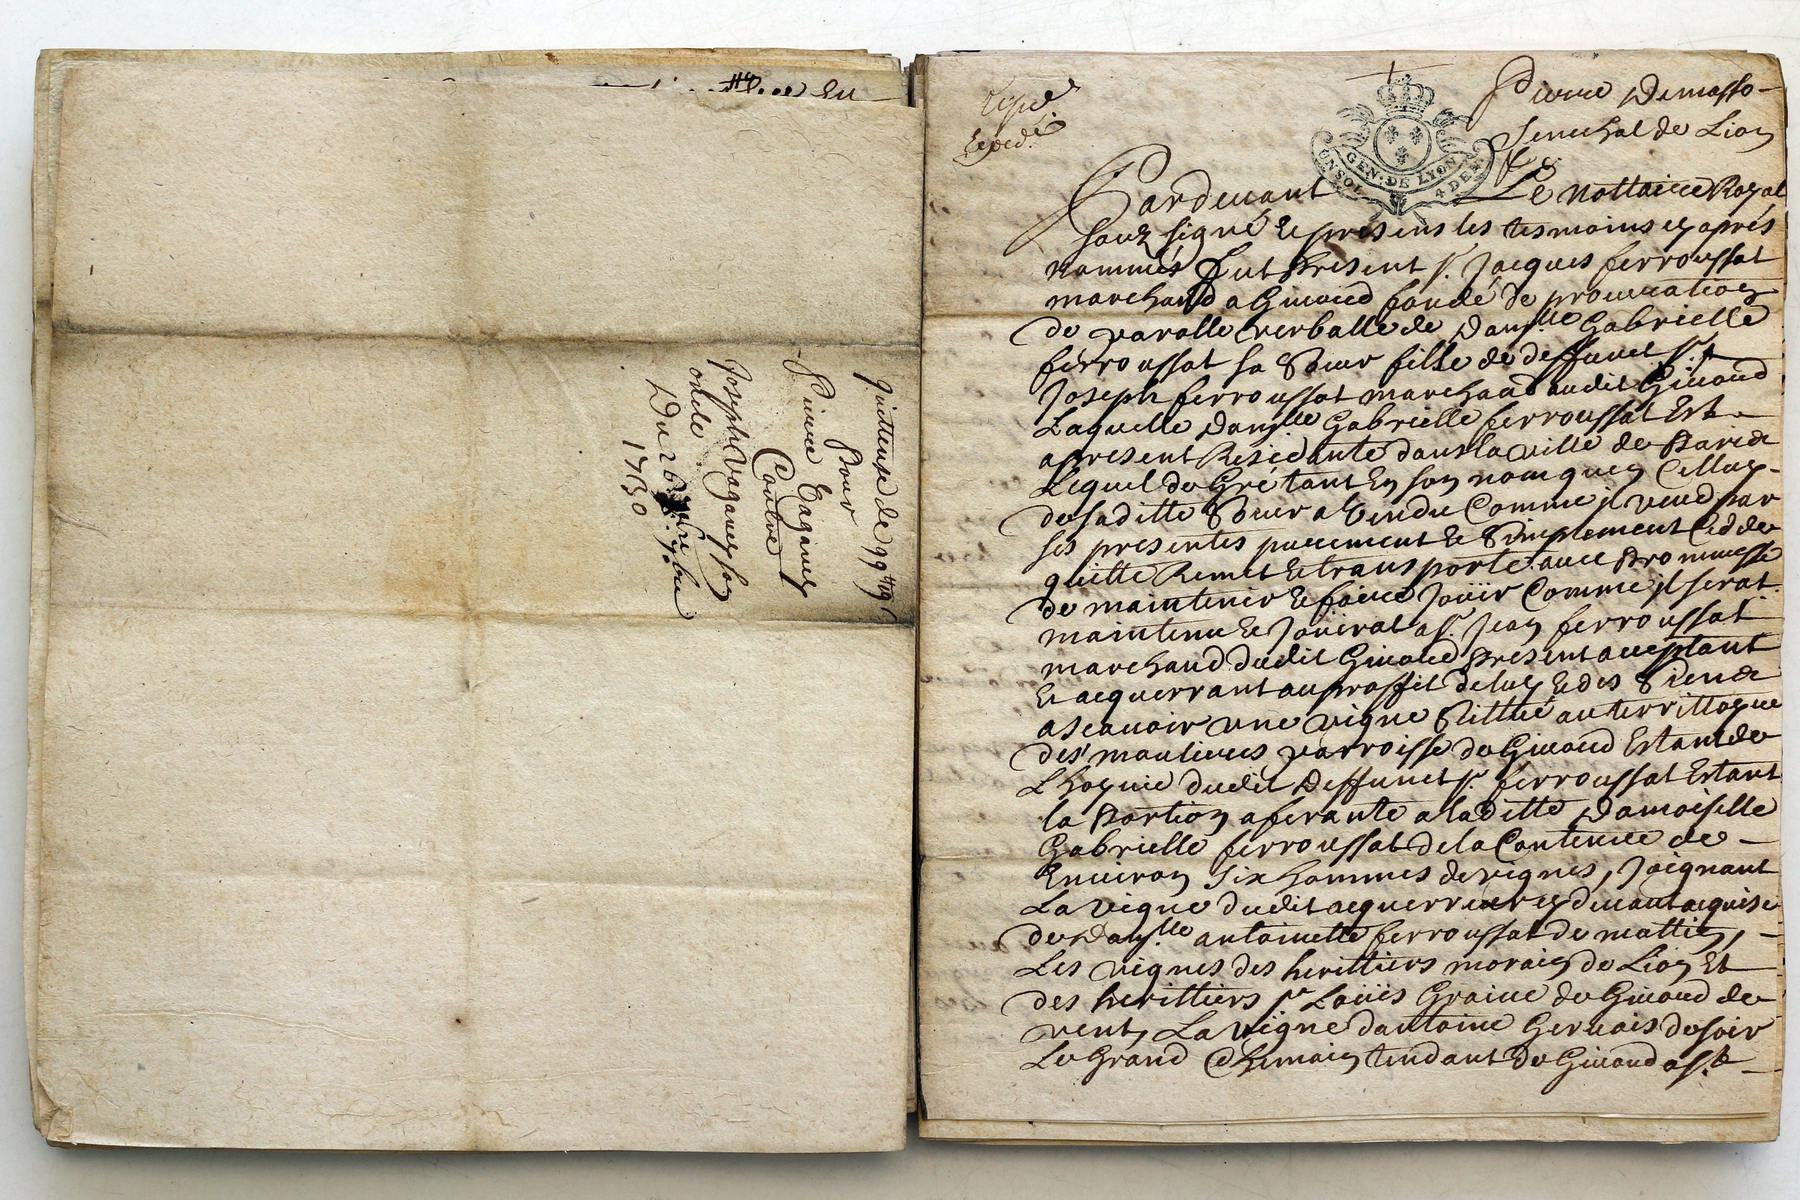 Quittense de 99ᵗᵗ 19
Pour
Pierre Eaganey
Contre
Joseph Vaganey son
oncle
Du 26
1730
expedié
Pierre Demasso
Senechal de Lion
GEN. DE LYON
UN SOL 4 DEN.
Pardeuant Le nottaire Royal
souz signé Et presens les tesmoins cy aprés
nommés fut Present sr. Jacques ferroussat
marchand a Giuord fondé de procuration
de parolle verballe de Damlle Gabrielle
ferroussat sa Sœur fille de deffunct sr.
Joseph ferroussat marchand audit Giuord
Laquelle Damlle Gabrielle ferroussat Est
apresent Residante dans la ville de Paris
Lequel de Gré tant En son nom quen Celluy
de saditte Sœur a Vendu Comme il vend par
ses presentes purement Et Simplement Cedde
quitte Remet Et transporte auec Promesse
de maintenir Et faire Joüir Comme il serat
maintenu Et Joüirat a sr. Jean ferroussat
marchand dudit Giuord Present acceptant
Et acquerrant au proffit de luy Et des Siens
ascauoir une vigne Scittué au territtoyre
des mautieres parroisse de Giuord Estant de
L'hoyrie dudit Deffunct sr. ferroussat Estant
la Portion aferante a laditte Damoiselle
Gabrielle ferroussat de la Contenue de
Enuiron six hommes de vignes, Joignant
La vigne dudit acquerreur cy deuant acquise
de Damlle antoinette ferroussat de mattin,
Les vignes des herittiers morain de Lion Et
des herittiers sr Loüis Graine de Giuord de
vent, La vigne dantoine Geruais de soir
Le Grand Chemain tendant de Giuord a st